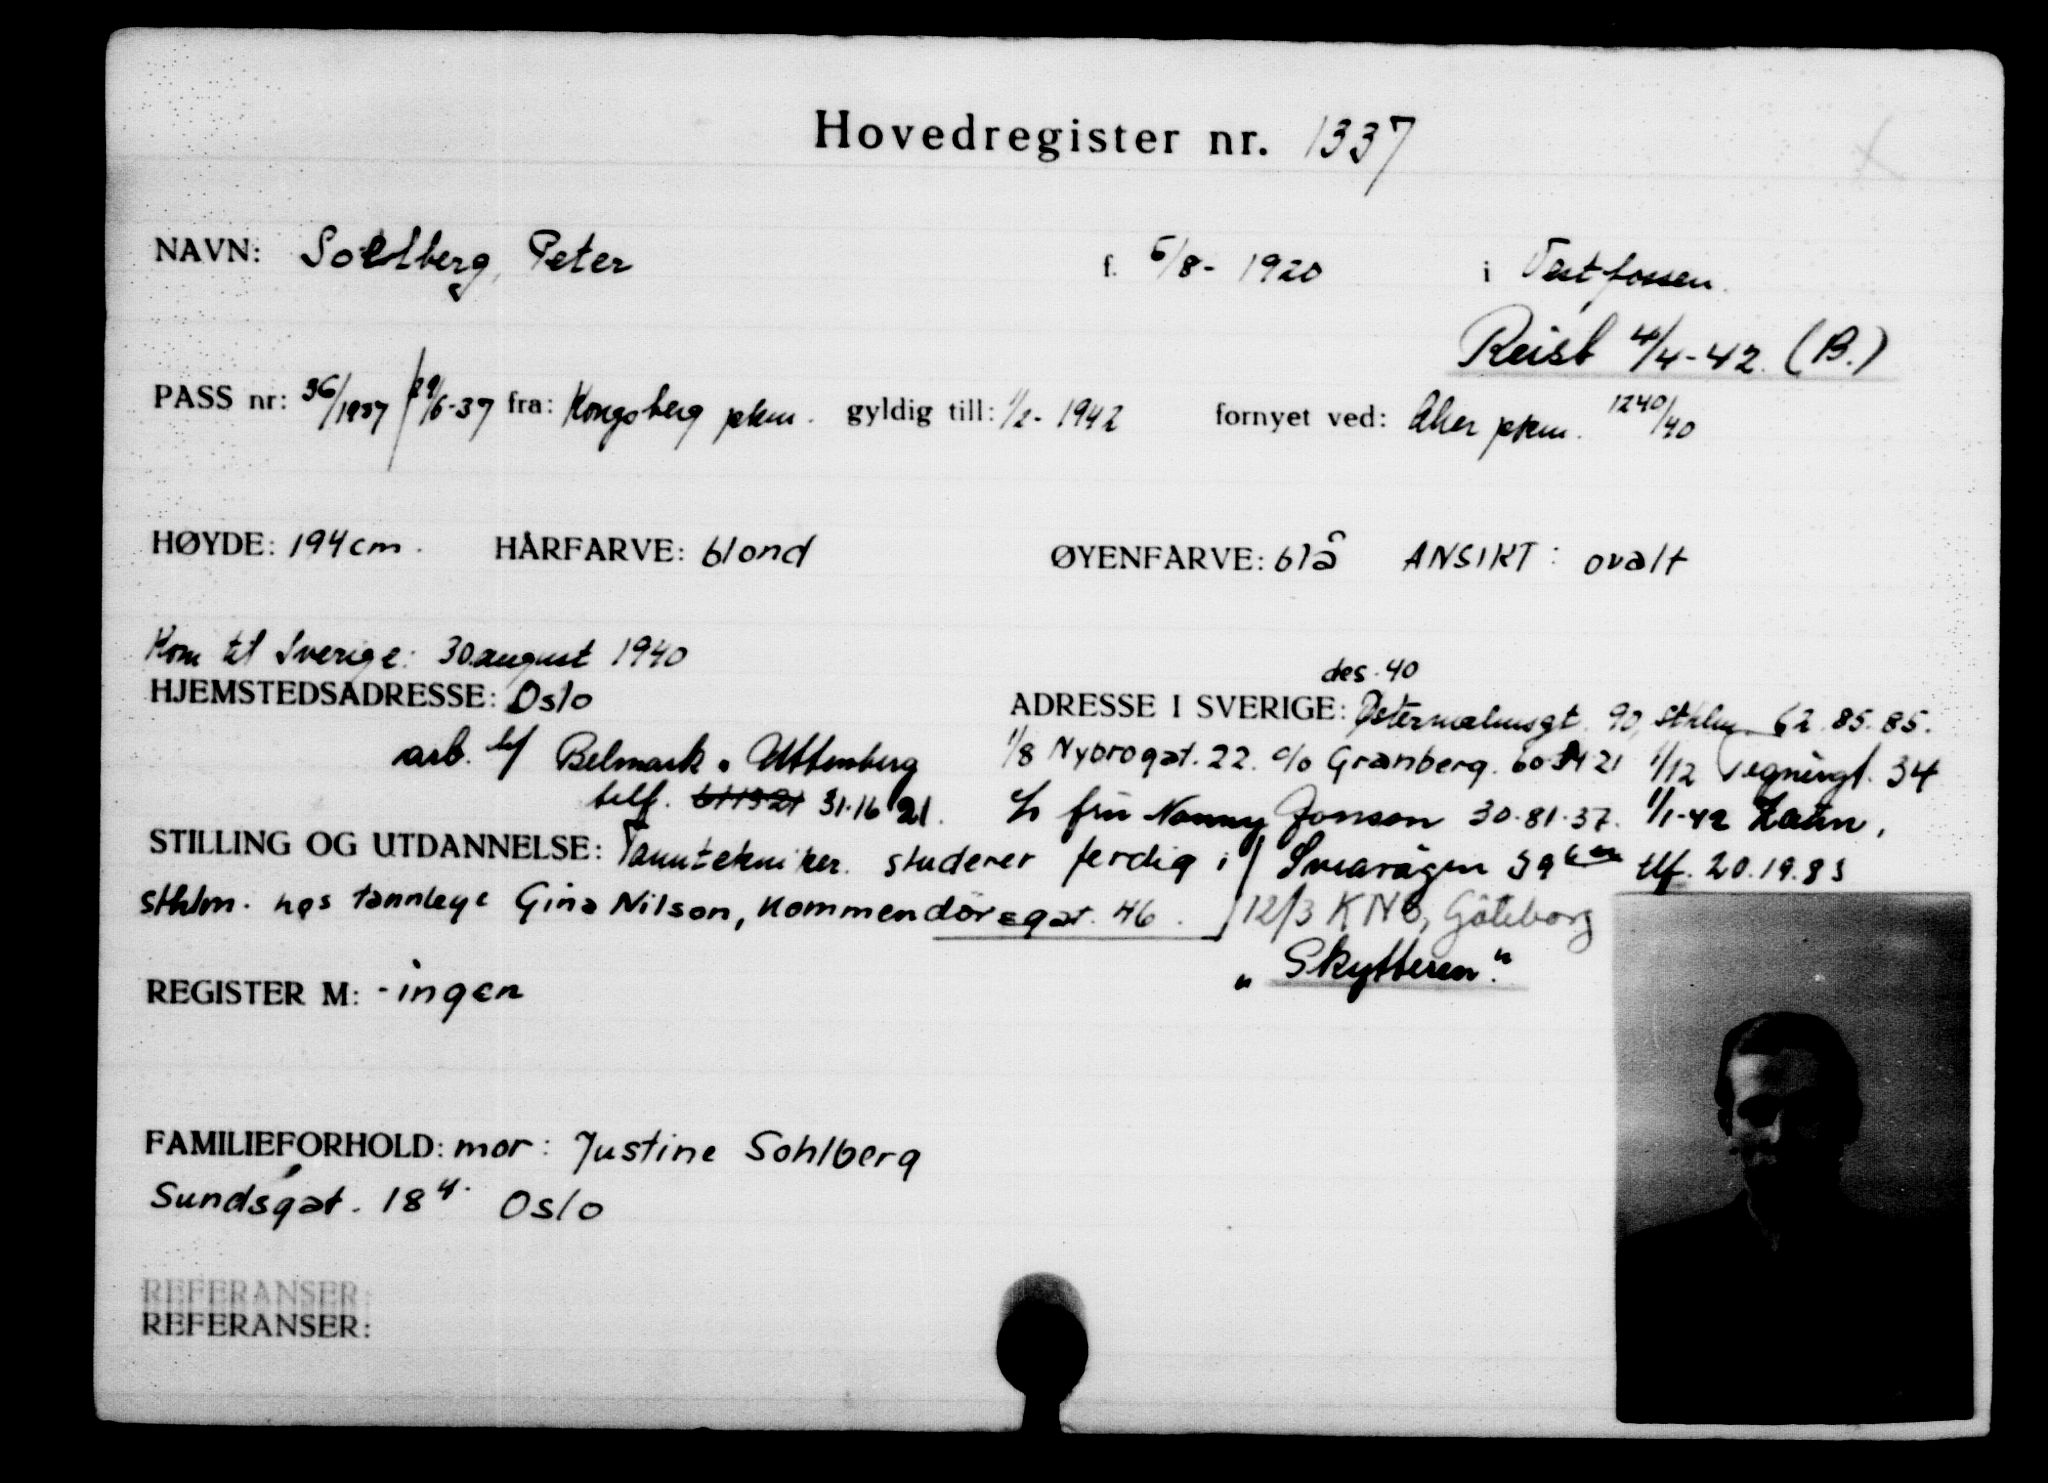 Hovedregister nr. 1337
NAVN: Sohlberg, Peter f. 5/8- 1920 i Vestfossen.
Reist 4/4-42. (B.)
PASS nr: 36/1937 29/6-37 fra: Kongsberg pkm. gyldig till: 1/2- 1942 fornyet ved: Aker pkm. 1240/40
HØYDE: 194 cm. HÅRFARVE: blond ØYENFARVE: blå ANSIKT: ovalt
Kom til Sverige: 30. august 1940
HJEMSTEDSADRESSE: Oslo
arb. h/ Belmark
telf. 31.16 21.
des. 40
ADRESSE I SVERIGE: Østermalmsgt. 90, Sthlm. 62.85.85.
1/8 Nybrogat. 22. c/o Granberg. 1/12 Tegnérgt. 34
fru Nanny Jonson 30.81.37. 1/1-42
Sveavägen 39 tlf. 20.19.83
12/3 KNO, Göteborg
"Skytteren".
STILLING OG UTDANNELSE: Tanntekniker. studerer ferdig i
Sthlm. hos tannlege Gina Nilson, Kommendörsgat. 46.
REGISTER M: - ingen
FAMILIEFORHOLD: mor: Justine Sohlberg
Sundsgat. 18 Oslo
REFERANSER:
REFERANSER: